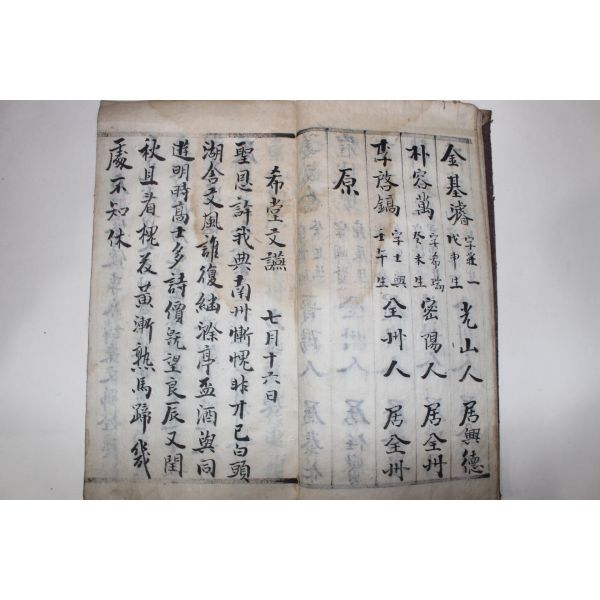 金基濬 字莊一 戊申生 光山人 居興德
朴容萬 字希瑞 癸未生 密陽人 居全州
李啓鎬 字士興 壬午生 全州人 居全州
原
希堂文讌 七月十六日
聖恩許我典南州慚愧非才已白頭
湖舍文風誰復紬滁亭盃酒與同
遊明時高士多詩價旣望良辰又閏
秋且看槐花黃漸熟馬蹄幾
處不知休